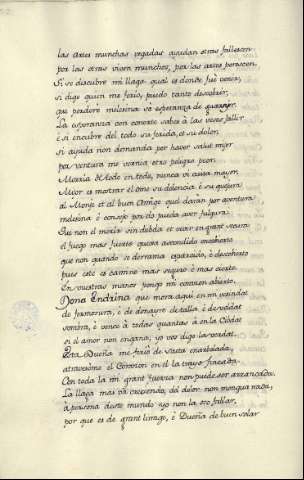 las artes munchas vegadas ayudan otras fallescen
por las artes viven munchos, por las artes perescen.
Si se descubre mi llaga qual es donde fué venir,
si digo quien me firió, puedo tanto descobrir,
que perderé melesina so esperanza de guarir
La esperanza con conorte sabes à las veses fallir
è si encubre del todo su ferida, et su dolor
si ayuda non demanda por haver salut mijor
por ventura me vernia otro peligro peor
Morria de todo en todo, nunca vi cuita mayor
Mijor es mostrar el ome su dolencia è su quejura
al Menje et al buen Amigo quel darán por aventura
melesina è consejo por do pueda aver folgura
que non el morir sin dubda et vivir en grant
el fuego mas fuerte quexa ascondido encobierto
que non quando se derrama esparcido, è descobierto
pues este es camino mas seguro è mas cierto
En vuestras manos pongo mi corazon abierto.
Dona Endrina que mora aqui en mi vecindat
de fermosura, è de donayre de talla è de beldat
sobra, è vence à todas quantas à en la Cibdat
si el amor non engaña, yo vos digo la verdat.
Esta Dueña me firió de saeta enarbolada,
atraviesame el Corazon en el la trayo fincada.
Con toda la mi grant fuerza non puede ser arrancada
La llaga mas vá cresciendo, del dolor non mengua nada,
à persona deste mundo yo non la oso fablar,
por que es de grant linage, è Dueña de buen solar